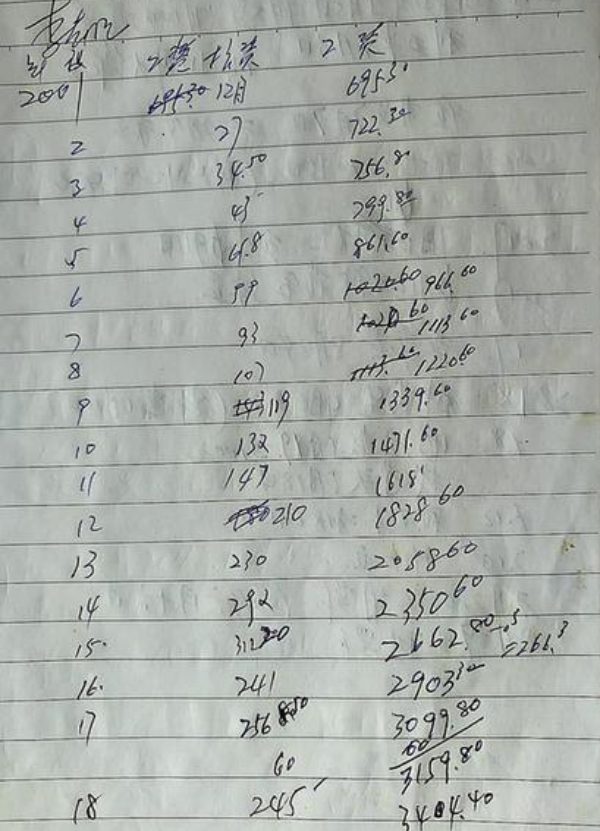 年 工资 工资
2001 12月 695.30
2 27 722.30
3 34.50 756.80
4 43 799.80
5 61.8 861.60
6 99 966.60
7 93 1113.60
8 107 1220.60
9 119 1339.60
10 132 1471.60
11 147 1618
12 210 1828.60
13 230 2058.60
14 292 2350.60
15. 312.20 2662.80
16. 241 2903.30
17 256 3099.80
60 60
3159.80
18 245 3404.40